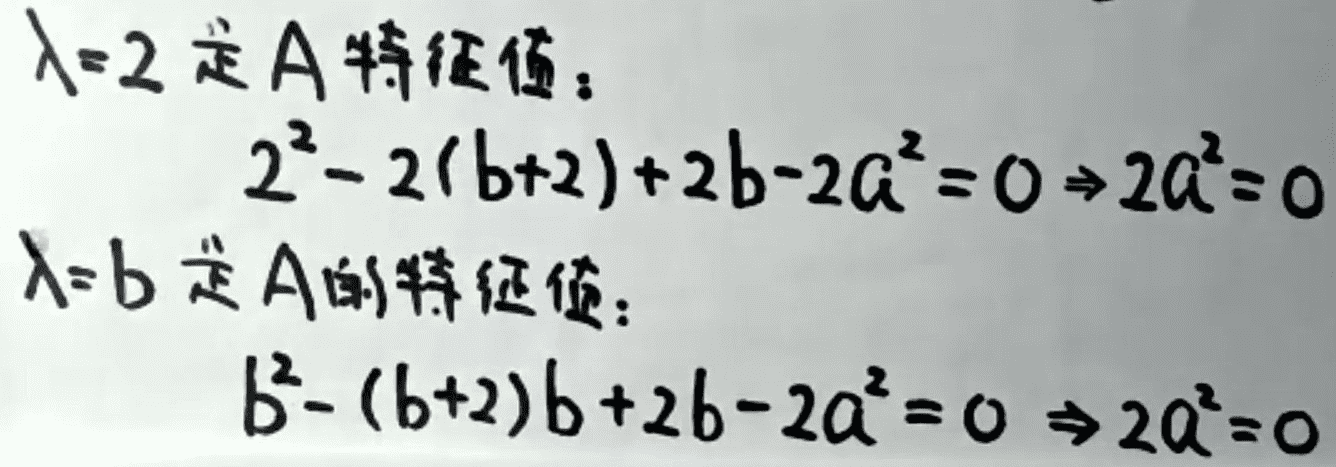 λ=2是A特征值：
2²-2(b+2)+2b-2a²=0⇒2a²=0
λ=b是A的特征值：
b²-(b+2)b+2b-2a²=0⇒2a²=0